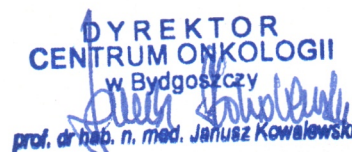 DYREKTOR
CENTRUM ONKOLOGII
w Bydgoszczy
prof. dr hab. n. med. Janusz Kowalewski